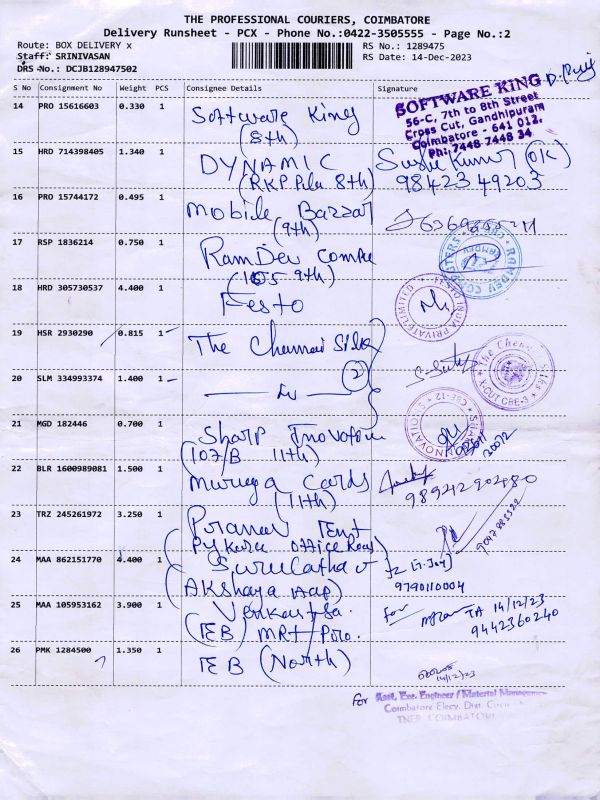 THE PROFESSIONAL COURIERS, COIMBATORE
Delivery Runsheet - PCX - Phone No.:0422-3505555 - Page No.:2
Route: BOX DELIVERY x
RS No.: 1289475
Staff: SRINIVASAN
RS Date: 14-Dec-2023
DRS No.: DCJB128947502
S No Consignment No Weight PCS Consignee Details Signature
14 PRO 15616603 0.330 1 Software King
(8th)
SOFTWARE KING
56-C, 7th to 8th Street
Cross Cut, Gandhipuram
Coimbatore - 641 012.
Ph: 7448 7448 34
15 HRD 714398405 1.340 1 DYNAMIC
(RKP Pila 8th)
(OK)
98423 49203
16 PRO 15744172 0.495 1 Mobile Bazzar
(9th)
17 RSP 1836214 0.750 1 RamDev Compu
(105 9th)
18 HRD 305730537 4.400 1 Festo
INDIA PRIVATE LIMITED
19 HSR 2930290 0.815 1 The Chennai Silk
20 SLM 334993374 1.400 1
(2)
The Chennai
X-CUT CBE
21 MGD 182446 0.700 1 Sharp Inovation
(107/B 11th)
INNOVATIONS CBE-12
22 BLR 1600989081 1.500 1 Muruga Cards
(11th)
9894290480
23 TRZ 245261972 3.250 1 Pranav Tent
Office Road
24 MAA 862151770 4.400 1
(Akshaya Aap)
9790110004
25 MAA 105953162 3.900 1
(TEB) MRT
for
14/12/23
9442360240
26 PMK 1284500 1.350 1 TEB (North)
14/12/23
For Asst. Exe. Engineer / Material Management
Coimbatore Elecy. Dist.
TNEB COIMBATORE